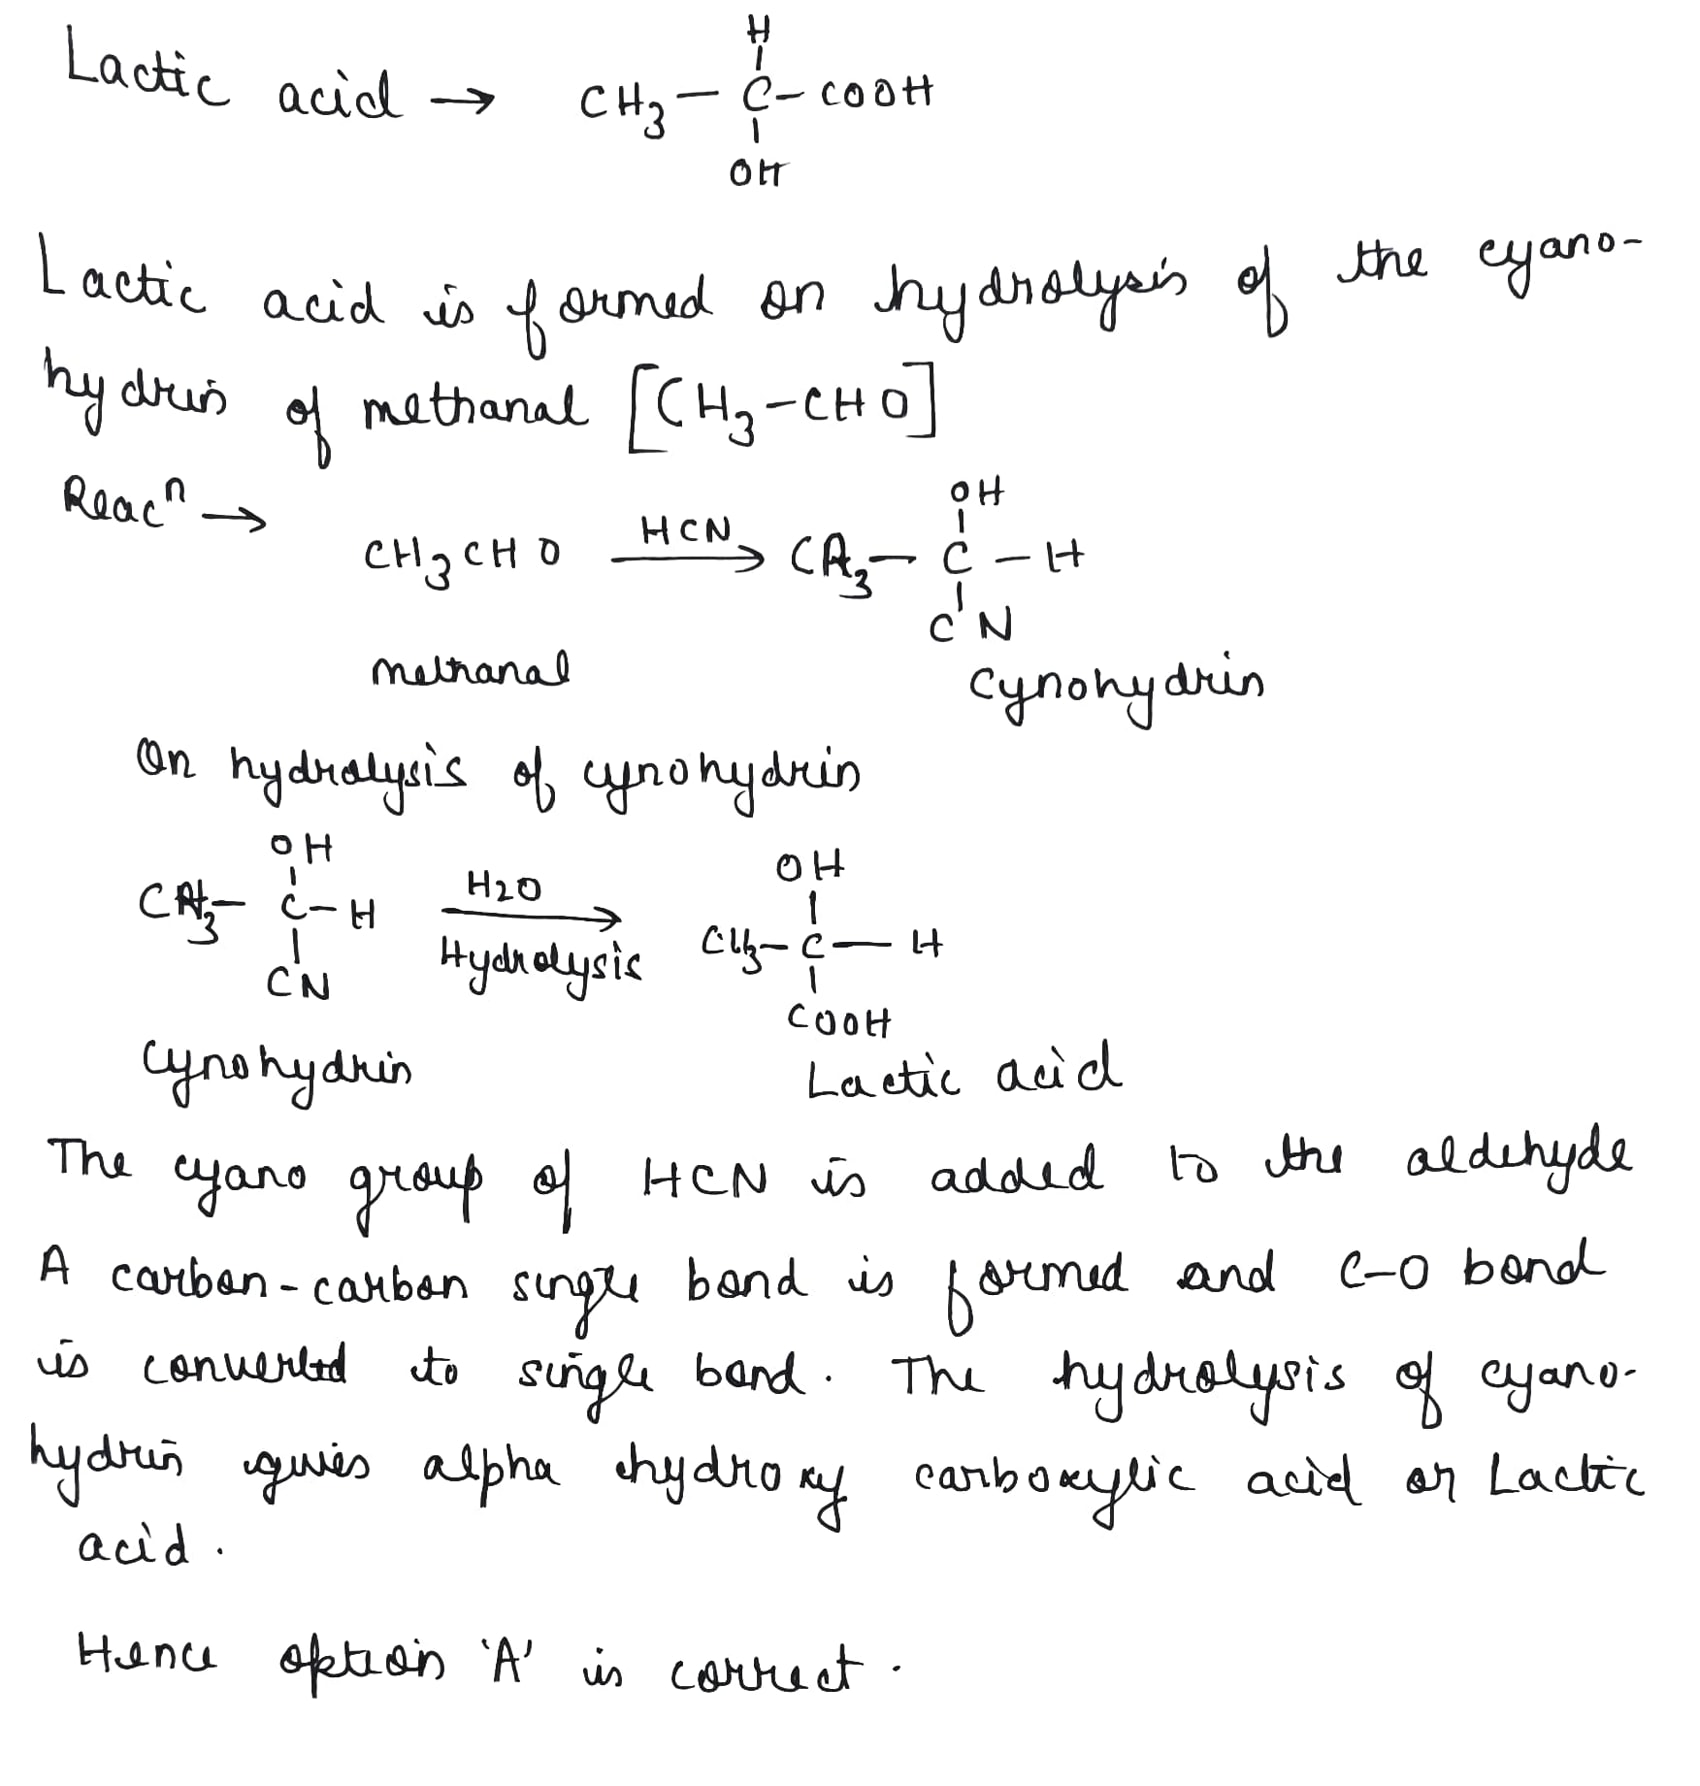 H
Lactic acid → CH3 - C - COOH
OH
Lactic acid is formed on hydrolysis of the cyano-
hydrin of methanal [CH3-CHO]
Reacn →
OH
CH3CHO HCN→ CH3 - C - H
CN
methanal
Cynohydrin
On hydrolysis of cynohydrin
OH OH
CH3 - C - H H2O→ CH3 - C - H
Hydrolysis
CN COOH
Cynohydrin Lactic acid
The cyano group of HCN is added to the aldehyde
A carbon-carbon single bond is formed and C-O bond
is converted to single bond. The hydrolysis of cyano-
hydrin gives alpha hydroxy carboxylic acid or Lactic
acid.
Hence option 'A' is correct.